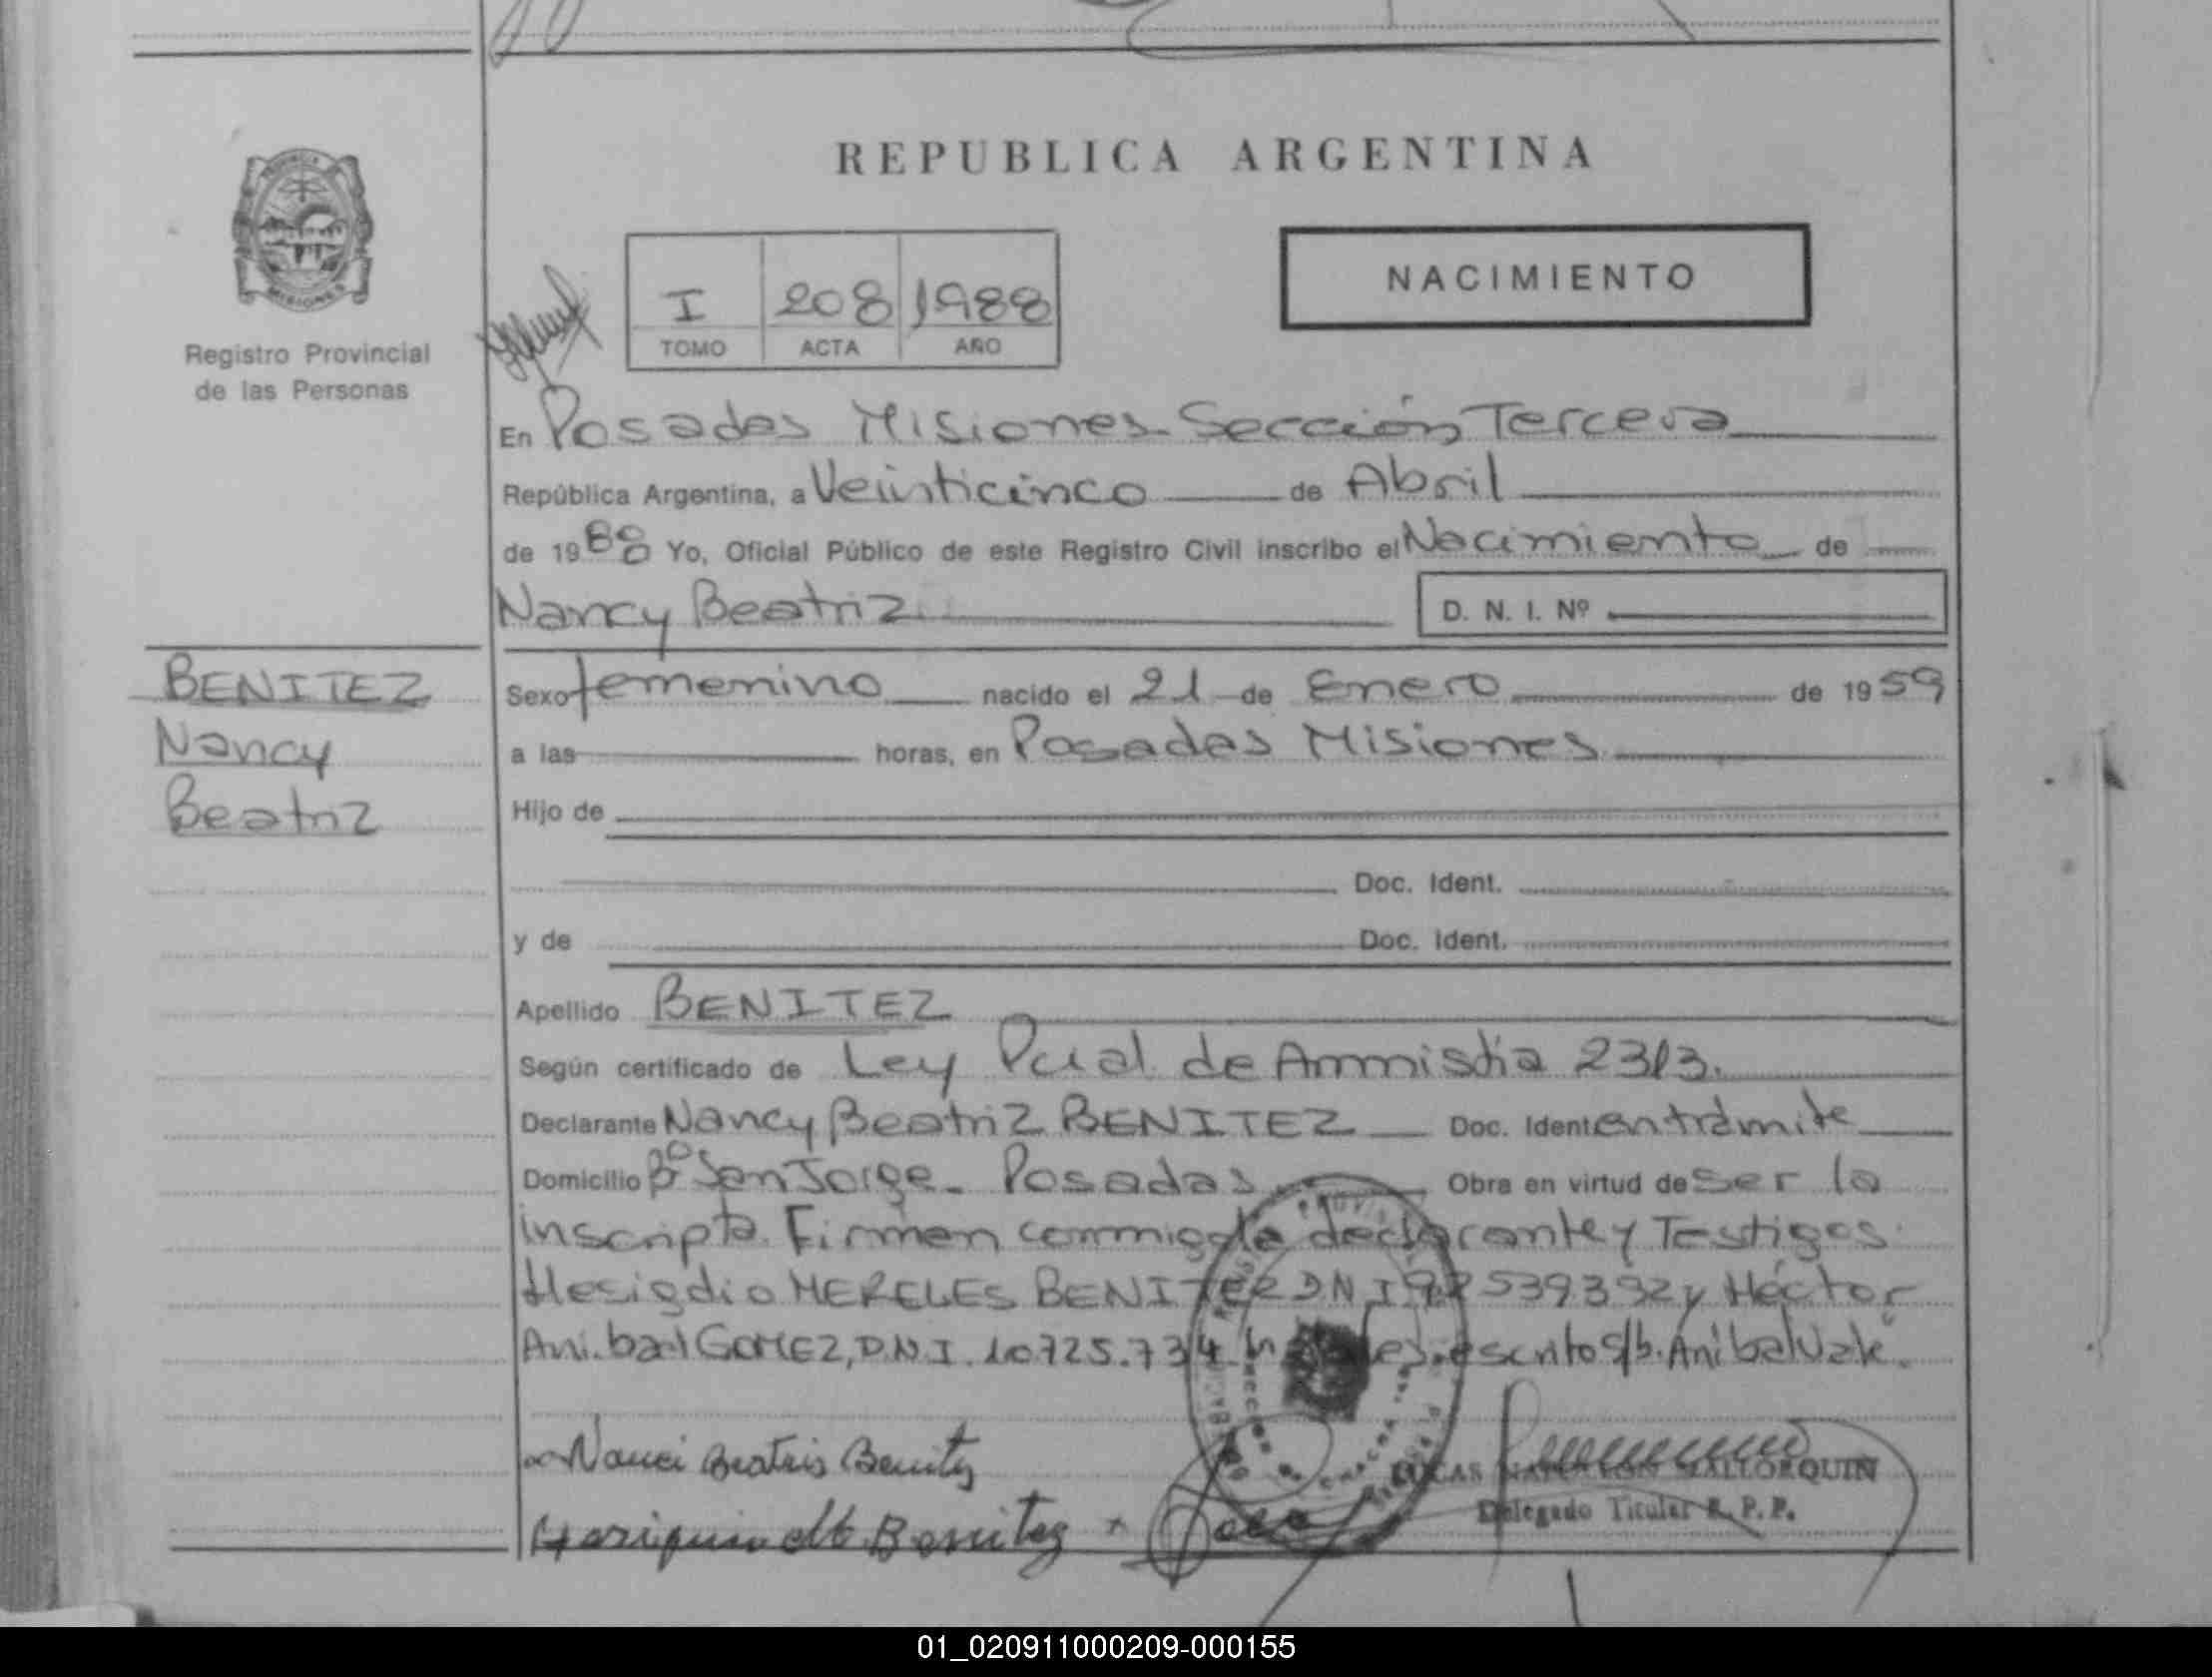 REPUBLICA ARGENTINA
NACIMIENTO
I 208 1988
TOMO ACTA AÑO
PROVINCIA
MISIONES
Registro Provincial
de las Personas
En Posadas Misiones Sección Tercera
República Argentina, a Veinticinco de Abril
de 1988 Yo, Oficial Público de este Registro Civil inscribo el Nacimiento de
Nancy Beatriz D. N. I. Nº
BENITEZ
Nancy
Beatriz
Sexo femenino nacido el 21 de Enero de 1959
a las horas, en Posadas Misiones
Hijo de
Doc. Ident.
y de Doc. Ident.
Apellido BENITEZ
Según certificado de Ley Pcial de Amnistia 2313.
Declarante Nancy Beatriz BENITEZ Doc. Ident en trámite
Domicilio Bº San Jorge - Posadas Obra en virtud de ser la
inscripta. Firman conmigo la declarante y Testigos
MERELES BENITEZ DNI 539392 y Héctor
Anibal GOMEZ, D.N.I. 10725.734 escrito s/b. Anibal Vale.
Nanci Beatris Benitez
Benitez
LUCAS NAPOLEON MALLORQUIN
Delegado Titular R. P. P.
01_020911000209-000155